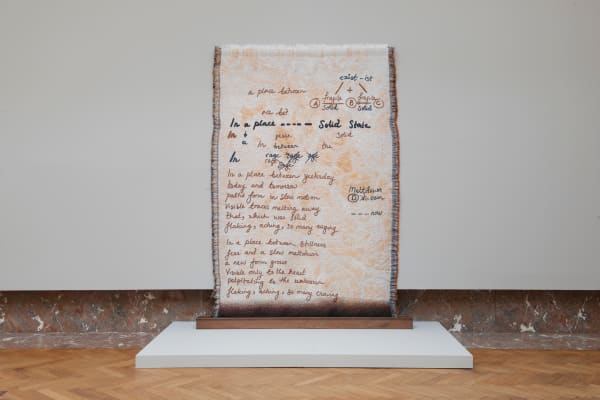 exist-ist
a place between
+
A fragile B fragile C
Solid Solid
In a place ----- Solid State
In a place Solid
In between the
In rage
In a place between yesterday
today and tomorrow
paths form in slow motion
visible traces melting away
that, which was solid
flaking, aching, so many raging
Meltdown
D
--- now
In a place between stillness
fear and a slow meltdown
a new form grows
Visible only to the heart
palpitating to the unknown
flaking, aching, so many craving